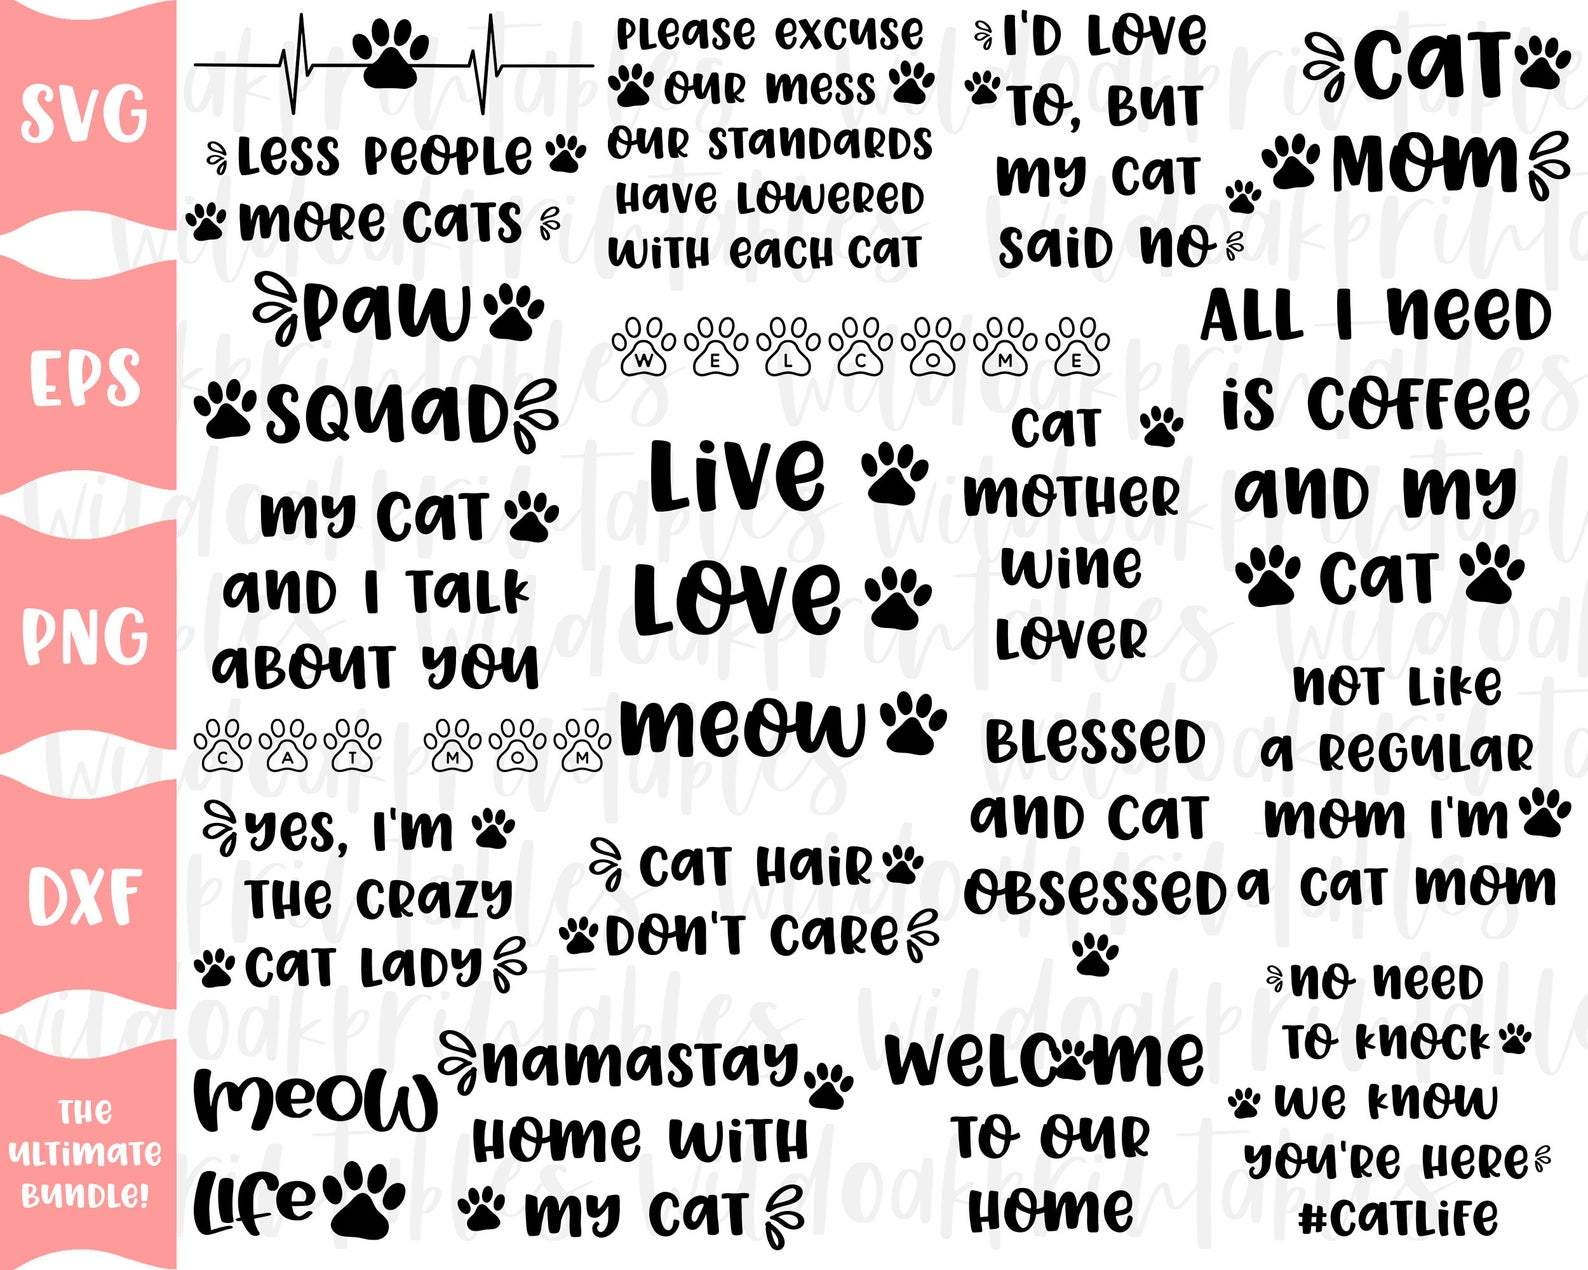 SVG
EPS
PNG
DXF
THE
ULTIMATE
BUNDLE!
Less People
More Cats
Paw
Squad
My Cat
and I Talk
About You
CAT MOM
Yes, I'm
The Crazy
Cat Lady
Meow
Life
Please Excuse
Our Mess
Our Standards
Have Lowered
With Each Cat
WELCOME
Live
Love
Meow
Cat Hair
Don't Care
Namastay
Home With
My Cat
I'd Love
To, But
My Cat
Said No
Cat
Mother
Wine
Lover
Blessed
and Cat
Obsessed
Welcome
To Our
Home
Cat
Mom
All I Need
is Coffee
and My
Cat
Not Like
a Regular
Mom I'm
a Cat Mom
No Need
To Knock
We Know
You're Here
#CatLife
wildoakprintables